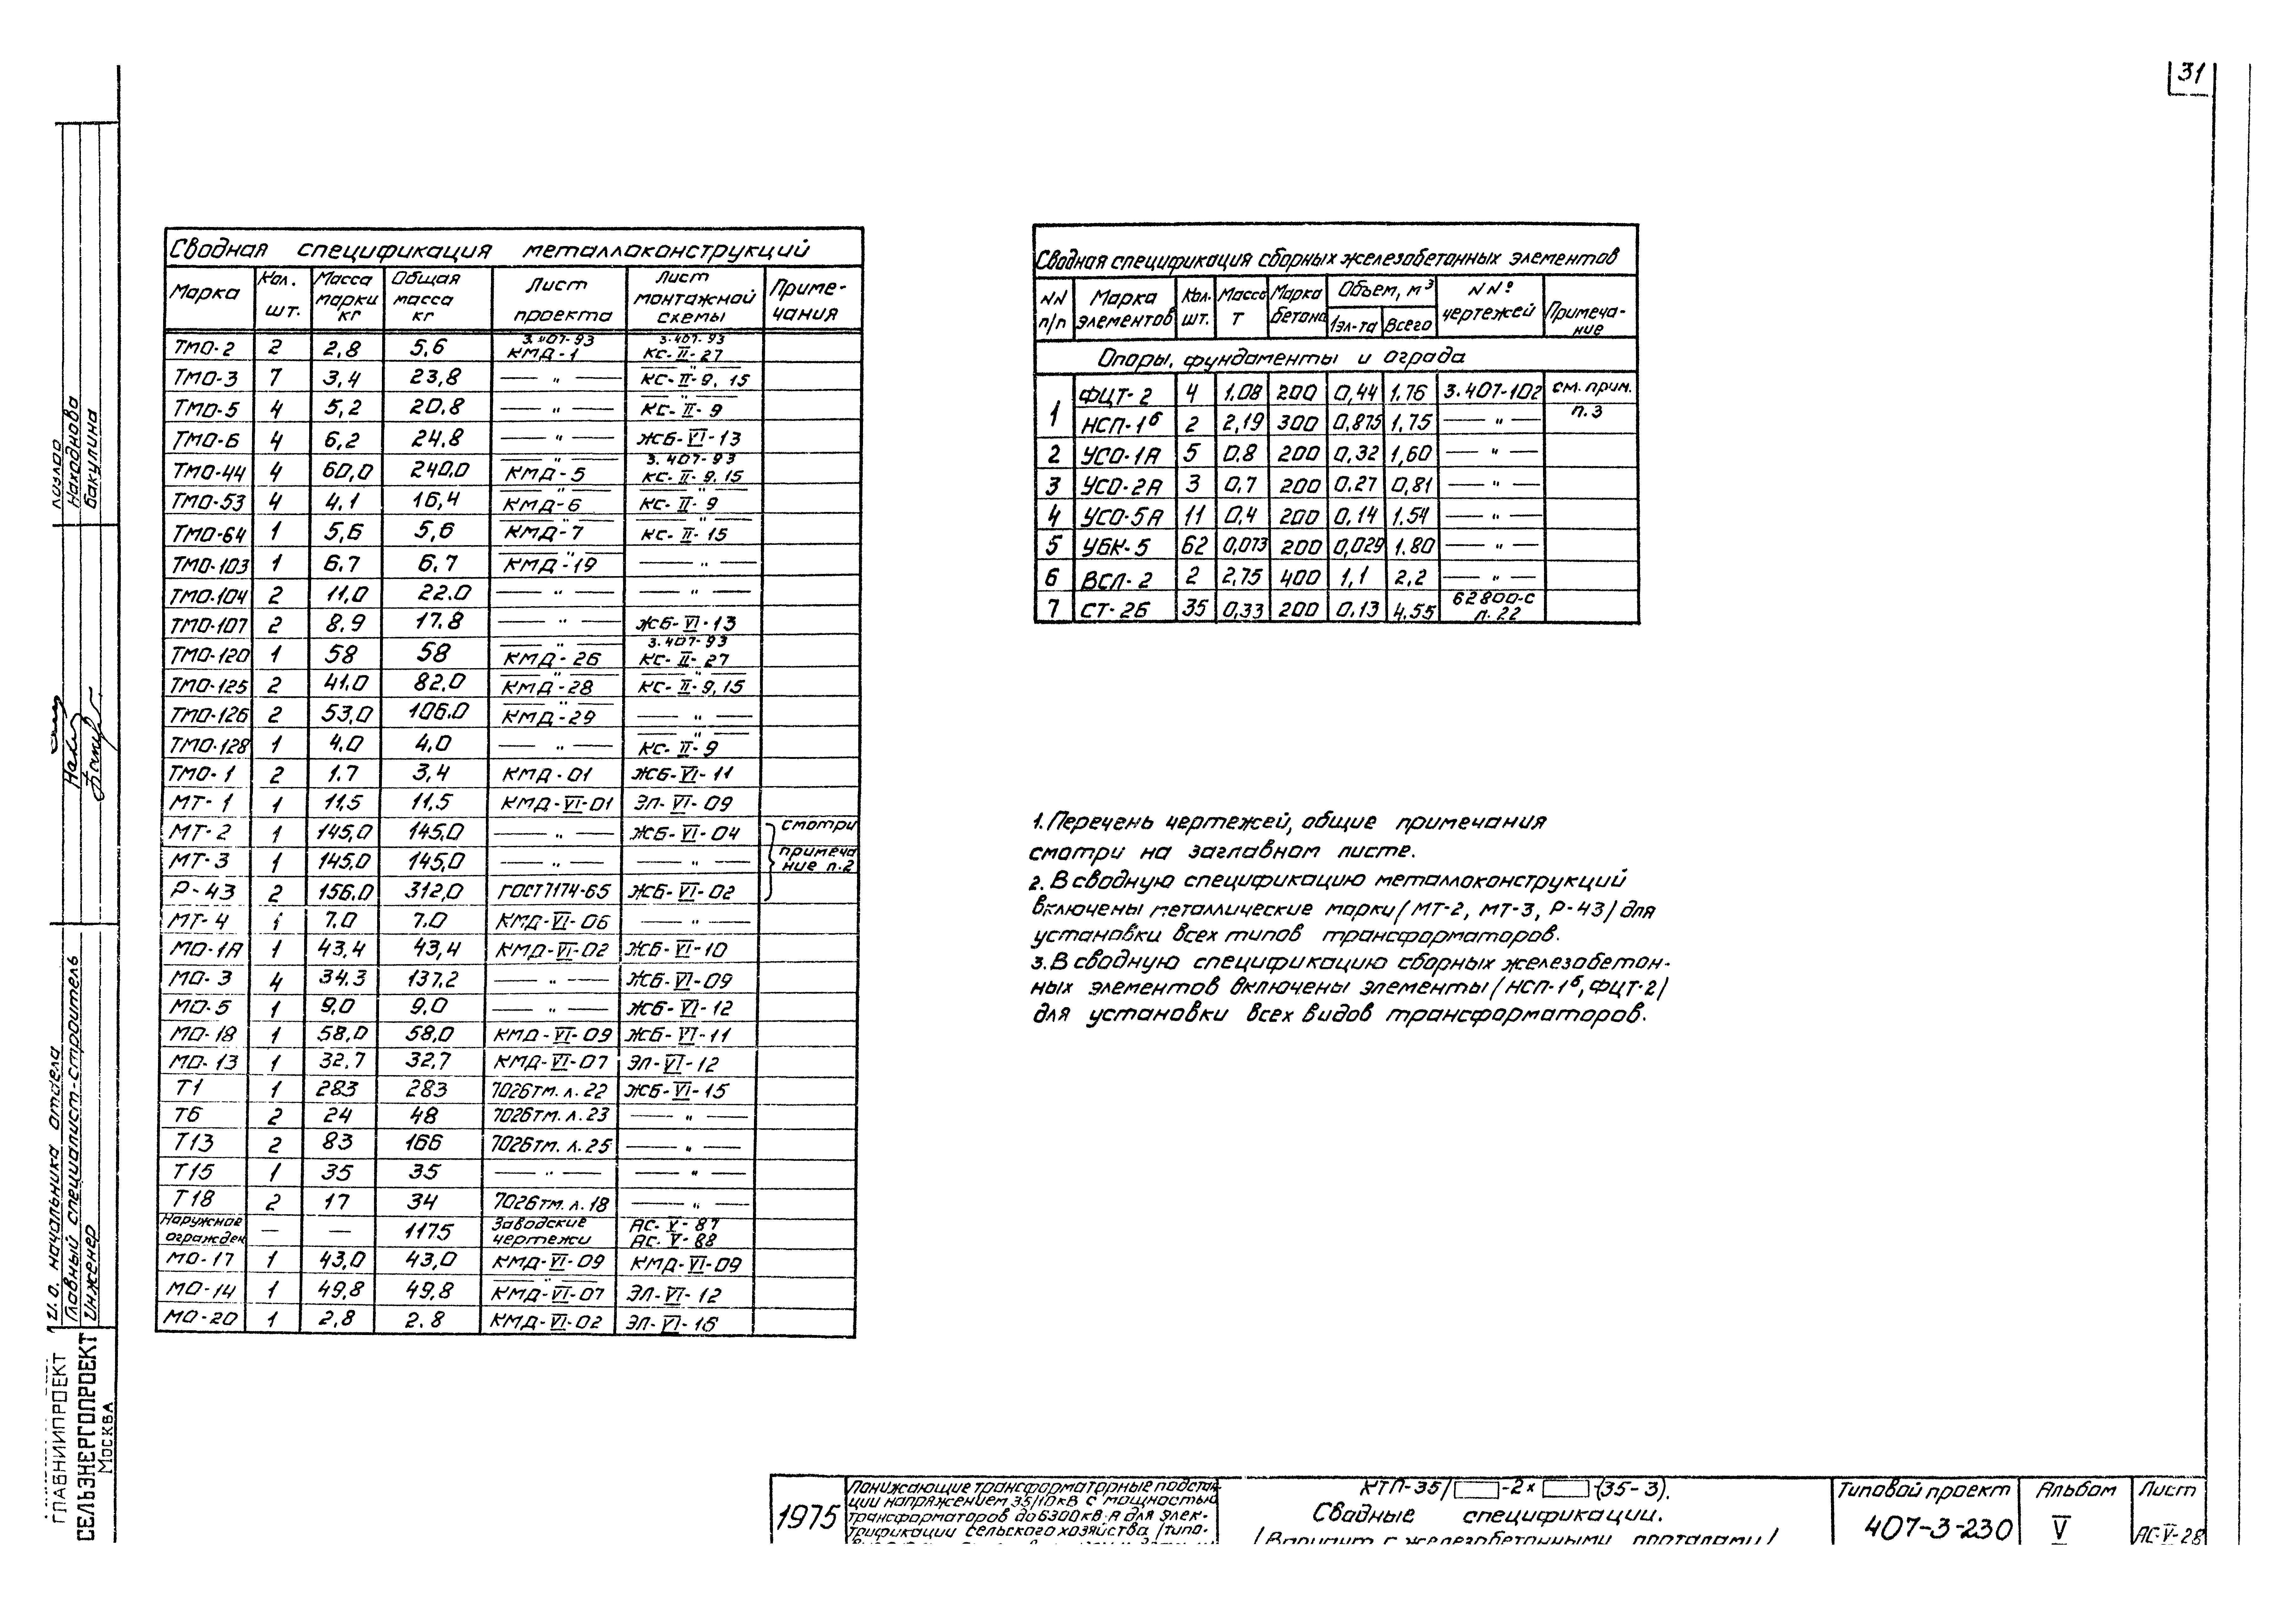 31
Сводная спецификация металлоконструкций
Марка Кол. шт. Масса марки кг Общая масса кг Лист проекта Лист монтажной схемы Примечания
ТМО-2 2 2,8 5,6 3.407-93 КМД-1 3.407-93 КС-II-27
ТМО-3 7 3,4 23,8 — " — — " — КС-II-9, 15
ТМО-5 4 5,2 20,8 — " — — " — КС-II-9
ТМО-6 4 6,2 24,8 — " — ЖБ-VI-13
ТМО-44 4 60,0 240,0 — " — КМД-5 3.407-93 КС-II-9,15
ТМО-53 4 4,1 16,4 — " — КМД-6 — " — КС-II-9
ТМО-64 1 5,6 5,6 — " — КМД-7 — " — КС-II-15
ТМО-103 1 6.7 6,7 — " — КМД-19 — " —
ТМО-104 2 11,0 22.0 — " — — " —
ТМО-107 2 8.9 17.8 — " — ЖБ-VI-13
ТМО-120 1 58 58 — " — КМД-26 3.407-93 КС-II-27
ТМО-125 2 41.0 82.0 — " — КМД-28 — " — КС-II-9,15
ТМО-126 2 53,0 106.0 — " — КМД-29 — " —
ТМО-128 1 4.0 4,0 — " — — " — КС-II-9
ТМО-1 2 1.7 3,4 КМД-01 ЖБ-VI-11
МТ-1 1 11,5 11,5 КМД-VI-01 ЭЛ-VI-09
МТ-2 1 145,0 145,0 — " — ЖБ-VI-04 смотри
МТ-3 1 145,0 145,0 — " — — " — примеча
ние п.2
Р-43 2 156,0 312,0 ГОСТ7174-65 ЖБ-VI-02
МТ-4 1 7.0 7.0 КМД-VI-06 — " —
МО-1А 1 43,4 43,4 КМД-VI-02 ЖБ-VI-10
МО-3 4 34.3 137,2 — " — ЖБ-VI-09
МО-5 1 9,0 9.0 — " — ЖБ-VI-12
МО-18 1 58,0 58,0 КМД-VI-09 ЖБ-VI-11
МО-13 1 32.7 32,7 КМД-VI-07 ЭЛ-VI-12
Т1 1 283 283 7026тм.л.22 ЖБ-VI-15
Т6 2 24 48 7026тм.л.23 — " —
Т13 2 83 166 7026тм.л.25 — " —
Т15 1 35 35 — " — — " —
Т18 2 17 34 7026тм.л.18 — " —
Наружное огражден — — 1175 Заводские чертежи АС-V-87 АС-V-88
МО-17 1 43,0 43,0 КМД-VI-09 КМД-VI-09
МО-14 1 49,8 49,8 — " — КМД-VI-07 ЭЛ-VI-12
МО-20 1 2,8 2.8 КМД-VI-02 ЭЛ-VI-16
Сводная спецификация сборных железобетонных элементов
NN п/п Марка элементов Кол. шт. Масса Т Марка бетона Объем, м³ 1эл-та Всего NNº чертежей Примечание
Опоры, фундаменты и ограда
1 ФЦТ-2 4 1.08 200 0,44 1.76 3.407-102 см.прим.
п.3
НСП-1б 2 2,19 300 0,875 1,75 — " —
2 УСО-1А 5 0.8 200 0,32 1,60 — " —
3 УСО-2А 3 0.7 200 0.27 0,81 — " —
4 УСО-5А 11 0,4 200 0,14 1.54 — " —
5 УБК-5 62 0,073 200 0,029 1.80 — " —
6 ВСЛ-2 2 2,75 400 1,1 2,2 — " —
7 СТ-2б 35 0,33 200 0.13 4.55 62800-с л.22
1. Перечень чертежей, общие примечания
смотри на заглавном листе.
2. В сводную спецификацию металлоконструкций
включены металлические марки (МТ-2, МТ-3, Р-43) для
установки всех типов трансформаторов.
3. В сводную спецификацию сборных железобетон-
ных элементов включены элементы (НСП-1б, ФЦТ-2)
для установки всех видов трансформаторов.
Козлов
Находнова
Бакулина
И.о. начальника отдела
Главный специалист-строитель
Инженер
ГЛАВНИИПРОЕКТ
СЕЛЬЭНЕРГОПРОЕКТ
МОСКВА
1975
Понижающие трансформаторные подстан
ции напряжением 35/10кв с мощностью
трансформаторов до 6300кв.А для элек-
трификации сельского хозяйства (типо.
КТП-35/ -2× -(35-3).
Сводные спецификации.
(Вариант с железобетонными порталами)
Типовой проект
407-3-230
Альбом
V
Лист
АС-V-28